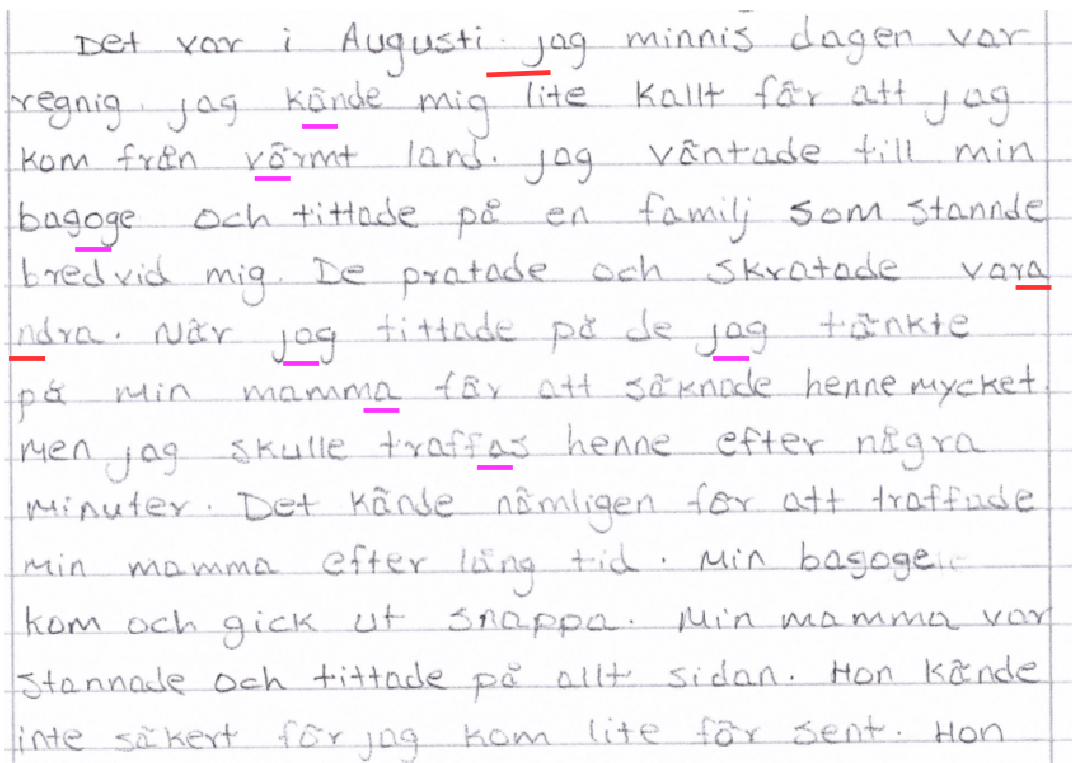 Det var i Augusti. jag minnis dagen var
regnig. jag kände mig lite kallt för att jag
kom från värmt land. jag väntade till min
bagoge och tittade på en familj som stannde
bredvid mig. De pratade och skratade vara
ndra. När jag tittade på de jag tänkte
på min mamma för att säknade henne mycket
men jag skulle traffas henne efter några
minuter. Det kände nämligen for att traffade
min mamma efter lång tid. Min bagoge
kom och gick ut snappa. Min mamma var
stannade och tittade på allt sidan. Hon kände
inte säkert för jag kom lite för sent. Hon